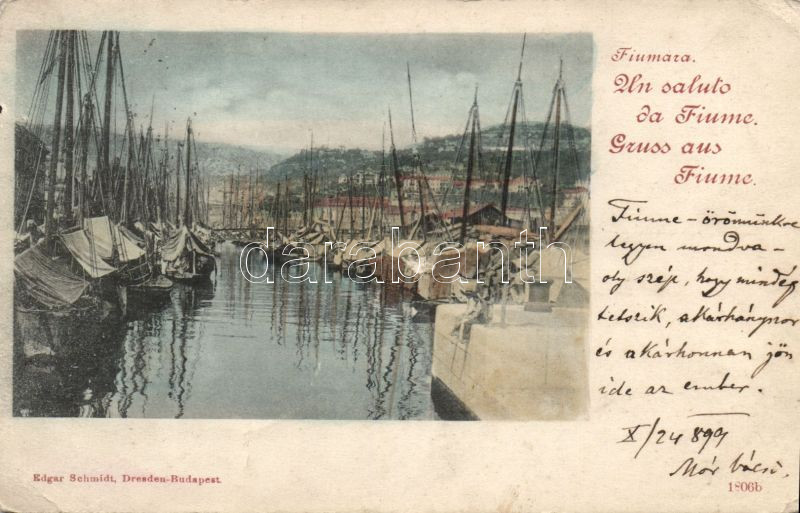 Fiumara.
Un saluto
da Fiume.
Gruss aus
Fiume.
Fiume - örömünkre
legyen mondva -
oly szép, hogy mindég
tetszik, akárhányszor
és akárhonnan jön
ide az ember.
X/24 899
Mór bácsi.
darabanth
Edgar Schmidt, Dresden-Budapest
1806b